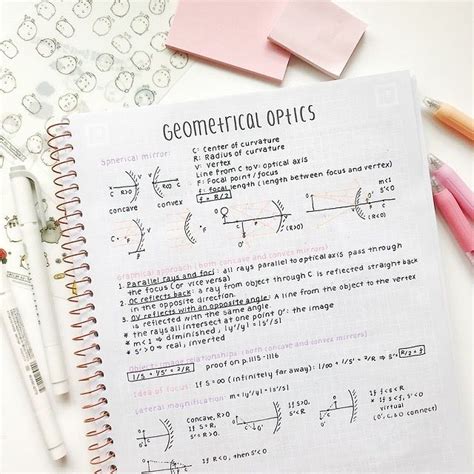 GEOMETRICAL OPTICS
Spherical mirror:
C: Center of curvature
R: Radius of curvature
V: Vertex
Line from C to V: optical axis
F: Focal point / focus
f: focal length (length between focus and vertex)
f = R/2
concave convex
(R<0)
m<1
s'>0
Graphical approach (both concave and convex mirrors)
1. Parallel rays and foci: all rays parallel to optical axis pass through
the focus (or vice versa)
2. OC reflects back: a ray from object through C is reflected straight back
in the opposite direction.
3. OV reflects with an opposite angle: A line from the object to the vertex
is reflected with the same angle.
* the rays all intersect at one point O': the image
* m<1 ⇒ diminished, |y'/y| = |s'/s|
* s'>0 ⇒ real, inverted
Object-image relationships: (both concave and convex mirrors)
1/s + 1/s' = 2/R proof on p.1115-1116
Idea of focus: if s=∞ (infinitely far away): 1/∞ + 1/s' = 2/R ⇒ s' = R/2 = f
Lateral magnification: m = |y'/y| = |s'/s|
Concave, R>0
If s=R,
s'=R
If s<f
virtual
(O'C, &O connect)
If R<0, then s'<0